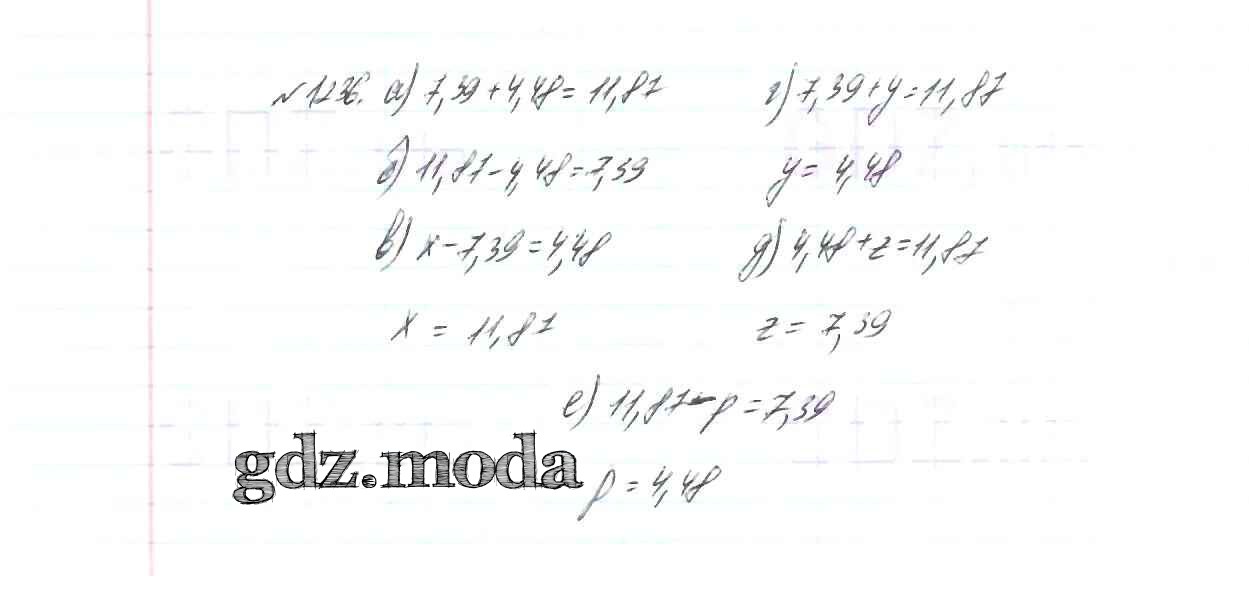 №1236. а) 7,39+4,48=11,87
б) 11,87-4,48=7,39
в) x-7,39=4,48
x = 11,87
г) 7,39+y=11,87
y= 4,48
д) 4,48+z=11,87
z= 7,39
е) 11,87-p=7,39
p=4,48
gdz.moda